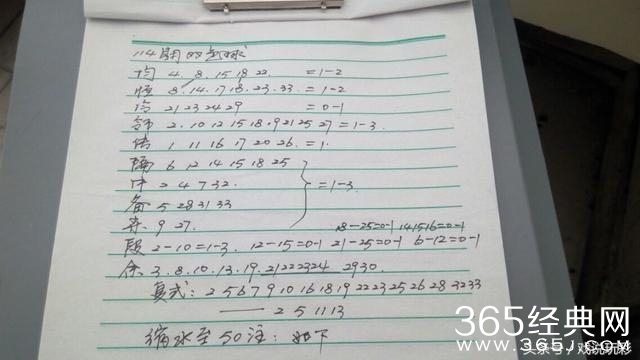 114期双色球
均 4. 8. 15 18 22. =1-2
恒 8. 14. 17 18. 23. 33. =1-2
冷 21 23 24 29 =0-1
邻 2. 10 12 15 18. 19 21 25 27 =1-3.
传 1 11 16 17 20 26. =1.
隔 6 12 14 15 18 25
中 2 4 7 32. =1-3.
备 5 28 31 33
奇. 9 27. 18-25=0-1 14 15 16=0-1
段 2-10=1-3. 12-15=0-1 21-25=0-1 6-12=0-1
余 3. 8. 10. 13. 19. 21 22 23 24 29 30.
复式: 2 5 6 7 9 10 16 18 19 22 23 25 26 28 32 33
—— 2 5 11 13
缩水至50注: 如下
365经典网
www.365j.com
头条号/